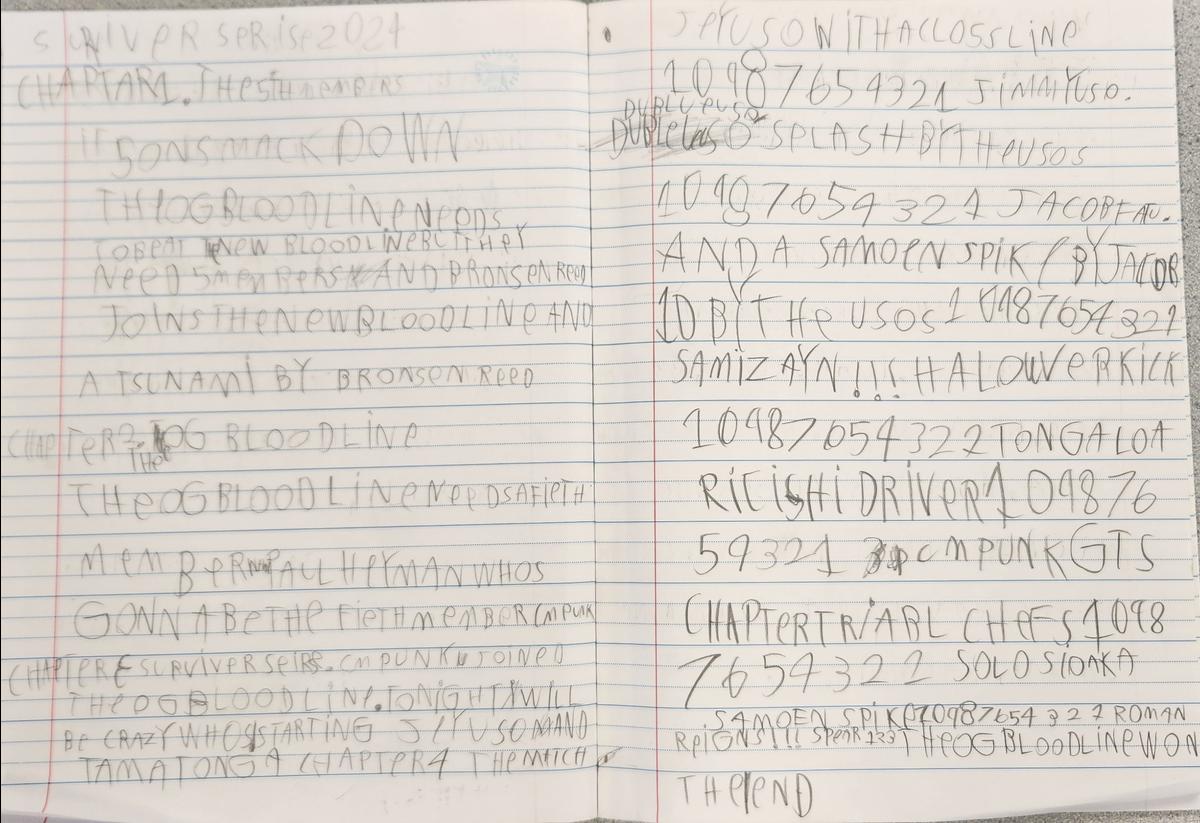 SURVIVER SERISE 2024
CHAPTAR1. THE 5TH MEMBERS
IF
5ON SMACK DOWN
THE OG BLOODLINE NEEDS
TO BEAT NEW BLOODLINE BUT THEY
NEED 5 MEMBERS AND BRONSEN REED
JOINS THE NEW BLOODLINE AND
A TSUNAMI BY BRONSEN REED
CHAPTER2. OG BLOODLINE
THE
THE OG BLOODLINE NEEDS A FIETH
MEMBER PAUL HEYMAN WHOS
GONNA BE THE FIETH MEMBER CM PUNK
CHAPTER SURVIVER SEIRS. CM PUNK JOINED
THE OG BLOODLINE. TONIGHT WILL
BE CRAZY WHOS STARTING JEY USO AND
TAMA TONGA CHAPTER4 THE MATCH
JEY USO WITH A CLOSS LINE
10 9 8 7 6 5 4 3 2 1 JIMMY USO.
DUBLE USO SPLASH BY THE USOS
10 9 8 7 6 5 4 3 2 1 JACOB FAU.
AND A SAMOEN SPIK BY JACOB
1D BY THE USOS 10 9 8 7 6 5 4 3 2 1
SAMI ZAYN!!! HALOUVER KICK
10 9 8 7 6 5 4 3 2 2 TONGA LOA
RICISHI DRIVER 10 9 8 7 6
5 9 3 2 1 CM PUNK GTS
CHAPTER TRIABL CHEFS 10 9 8
7 6 5 4 3 2 2 SOLO SIOKA
SAMOEN SPIKE 10 9 8 7 6 5 4 3 2 1 ROMAN
REIGNS!!! SPEAR 123 THE OG BLOODLINE WON
THE END